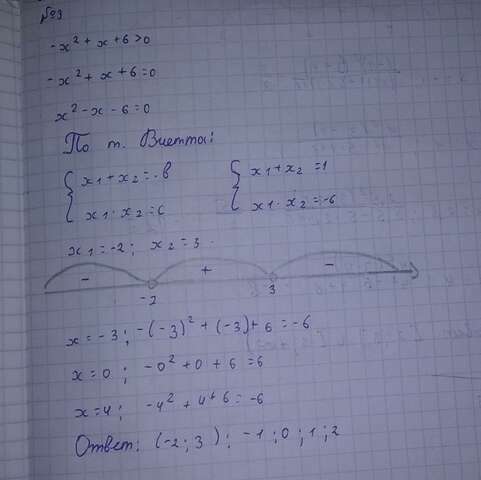 №3
-x² + x + 6 > 0
-x² + x + 6 = 0
x² - x - 6 = 0
По т. Виетта:
{ x1 + x2 = -в { x1 + x2 = 1
{ x1 · x2 = c { x1 · x2 = -6
x1 = -2 ; x2 = 3 .
- + -
-2 3
x = -3 ; -(-3)² + (-3) + 6 = -6
x = 0 ; -0² + 0 + 6 = 6
x = 4 ; -4² + 4 + 6 = -6
Ответ: (-2 ; 3) ; -1 ; 0 ; 1 ; 2